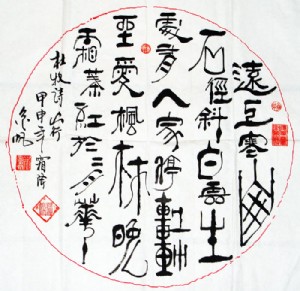 遠上寒山
石徑斜白雲生
處有人家停車
坐愛楓林晚
霜葉紅於二月華
杜牧詩山行
甲申年霜降